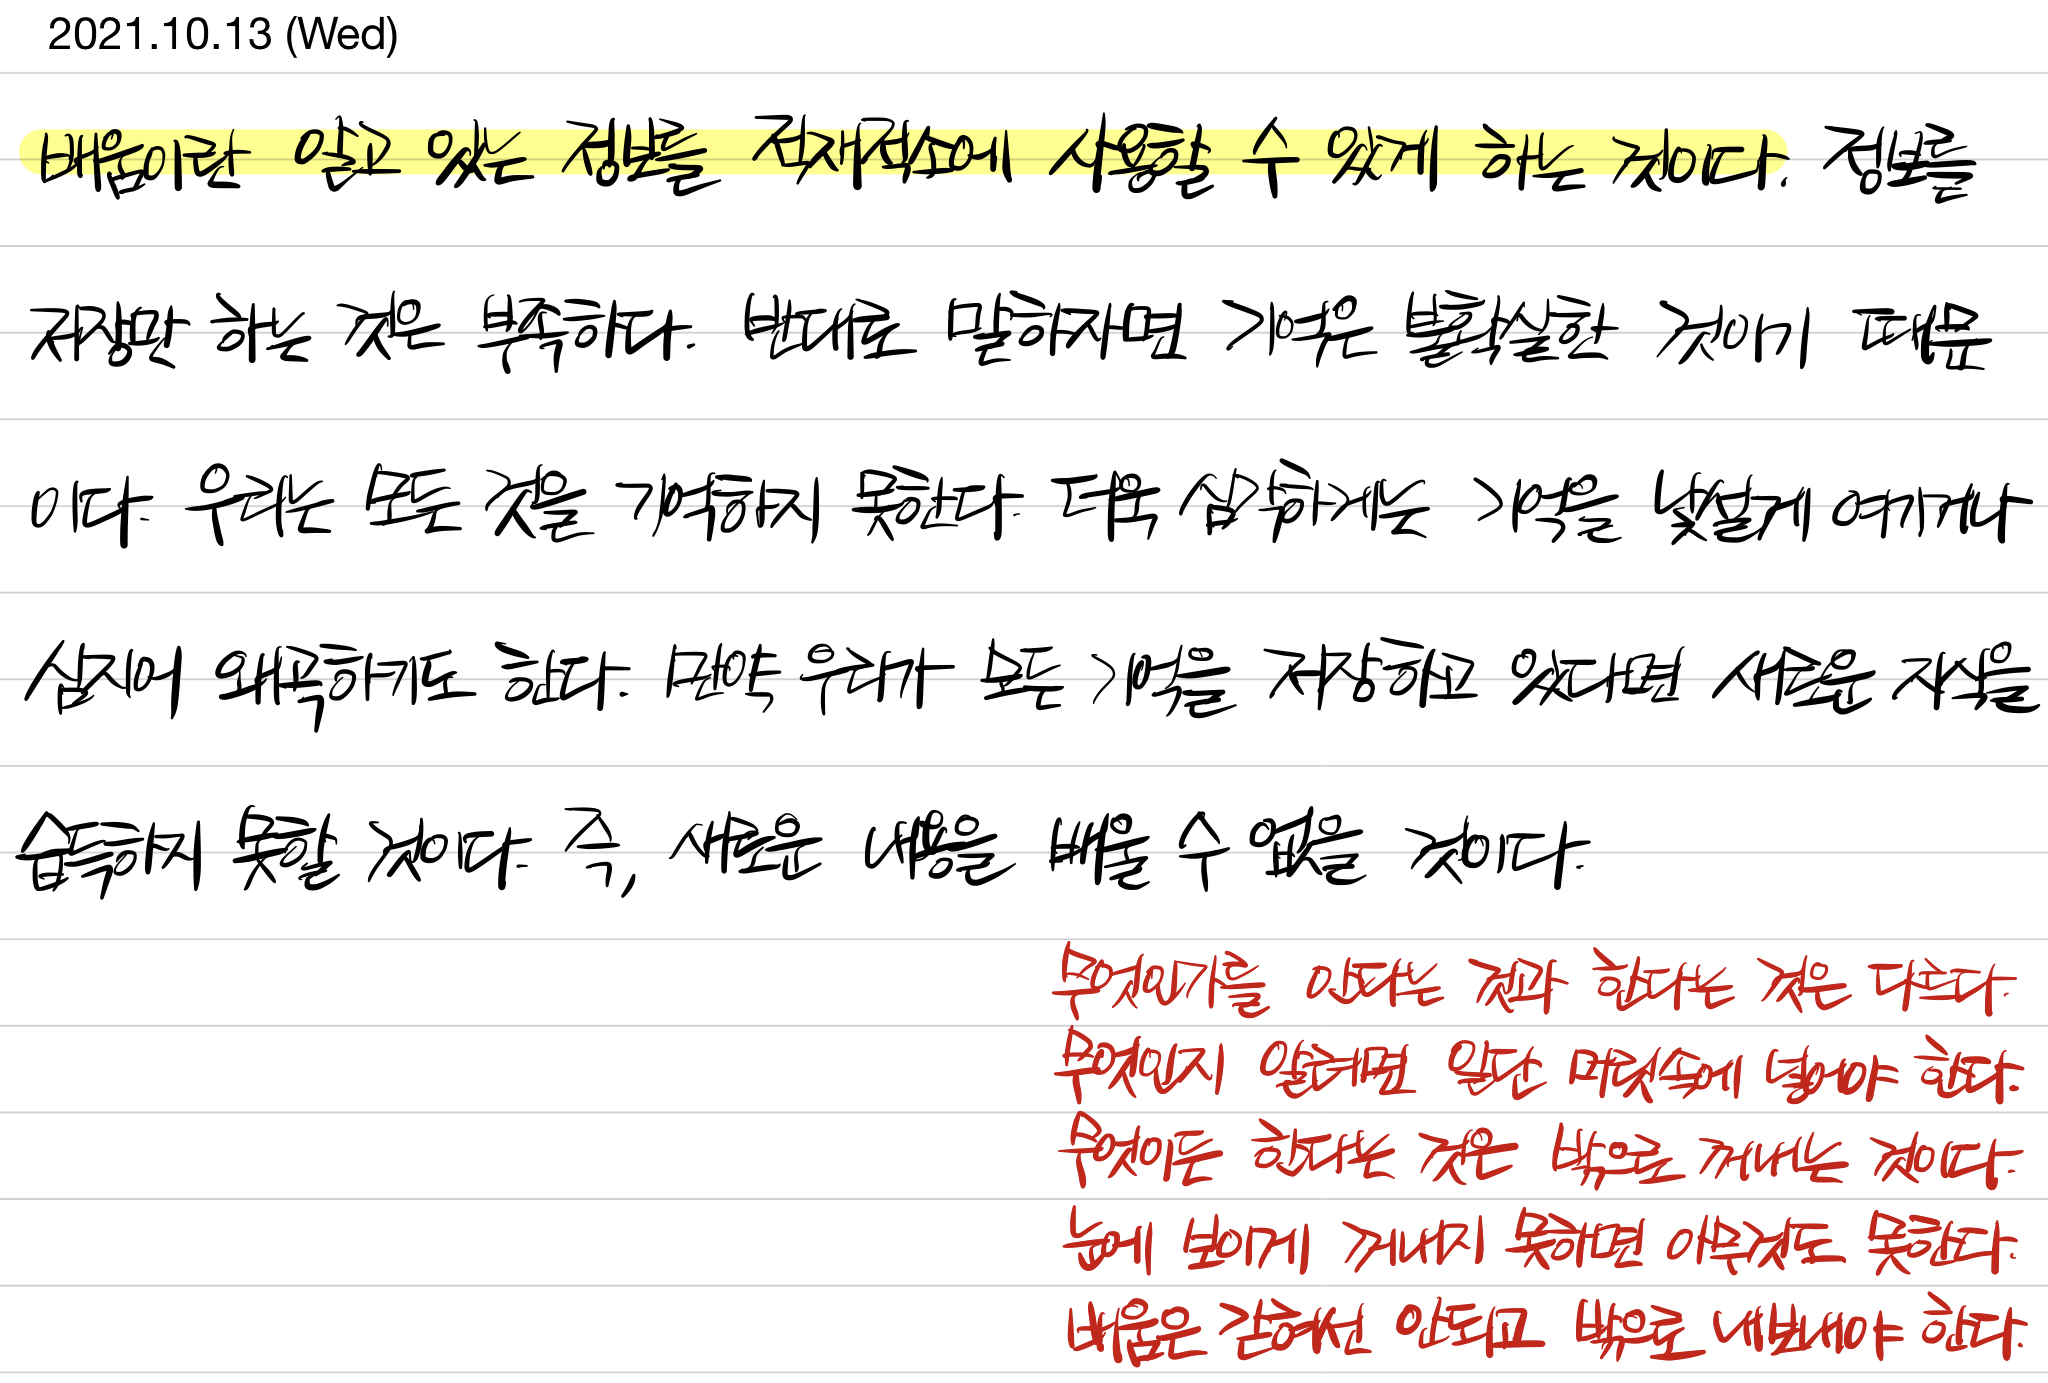 2021.10.13 (Wed)
배움이란 알고 있는 정보를 적재적소에 사용할 수 있게 하는 것이다. 정보를
저장만 하는 것은 부족하다. 반대로 말하자면 기억은 불확실한 것이기 때문
이다. 우리는 모든 것을 기억하지 못한다. 더욱 심각하게는 기억을 낯설게 여기거나
심지어 왜곡하기도 한다. 만약 우리가 모든 기억을 저장하고 있다면 새로운 지식을
습득하지 못할 것이다. 즉, 새로운 내용을 배울 수 없을 것이다.
무엇인가를 안다는 것과 한다는 것은 다르다.
무엇인지 알려면 일단 머릿속에 넣어야 한다.
무엇이든 한다는 것은 밖으로 꺼내는 것이다.
눈에 보이게 꺼내지 못하면 아무것도 못한다.
배움은 갇혀선 안되고 밖으로 내보내야 한다.